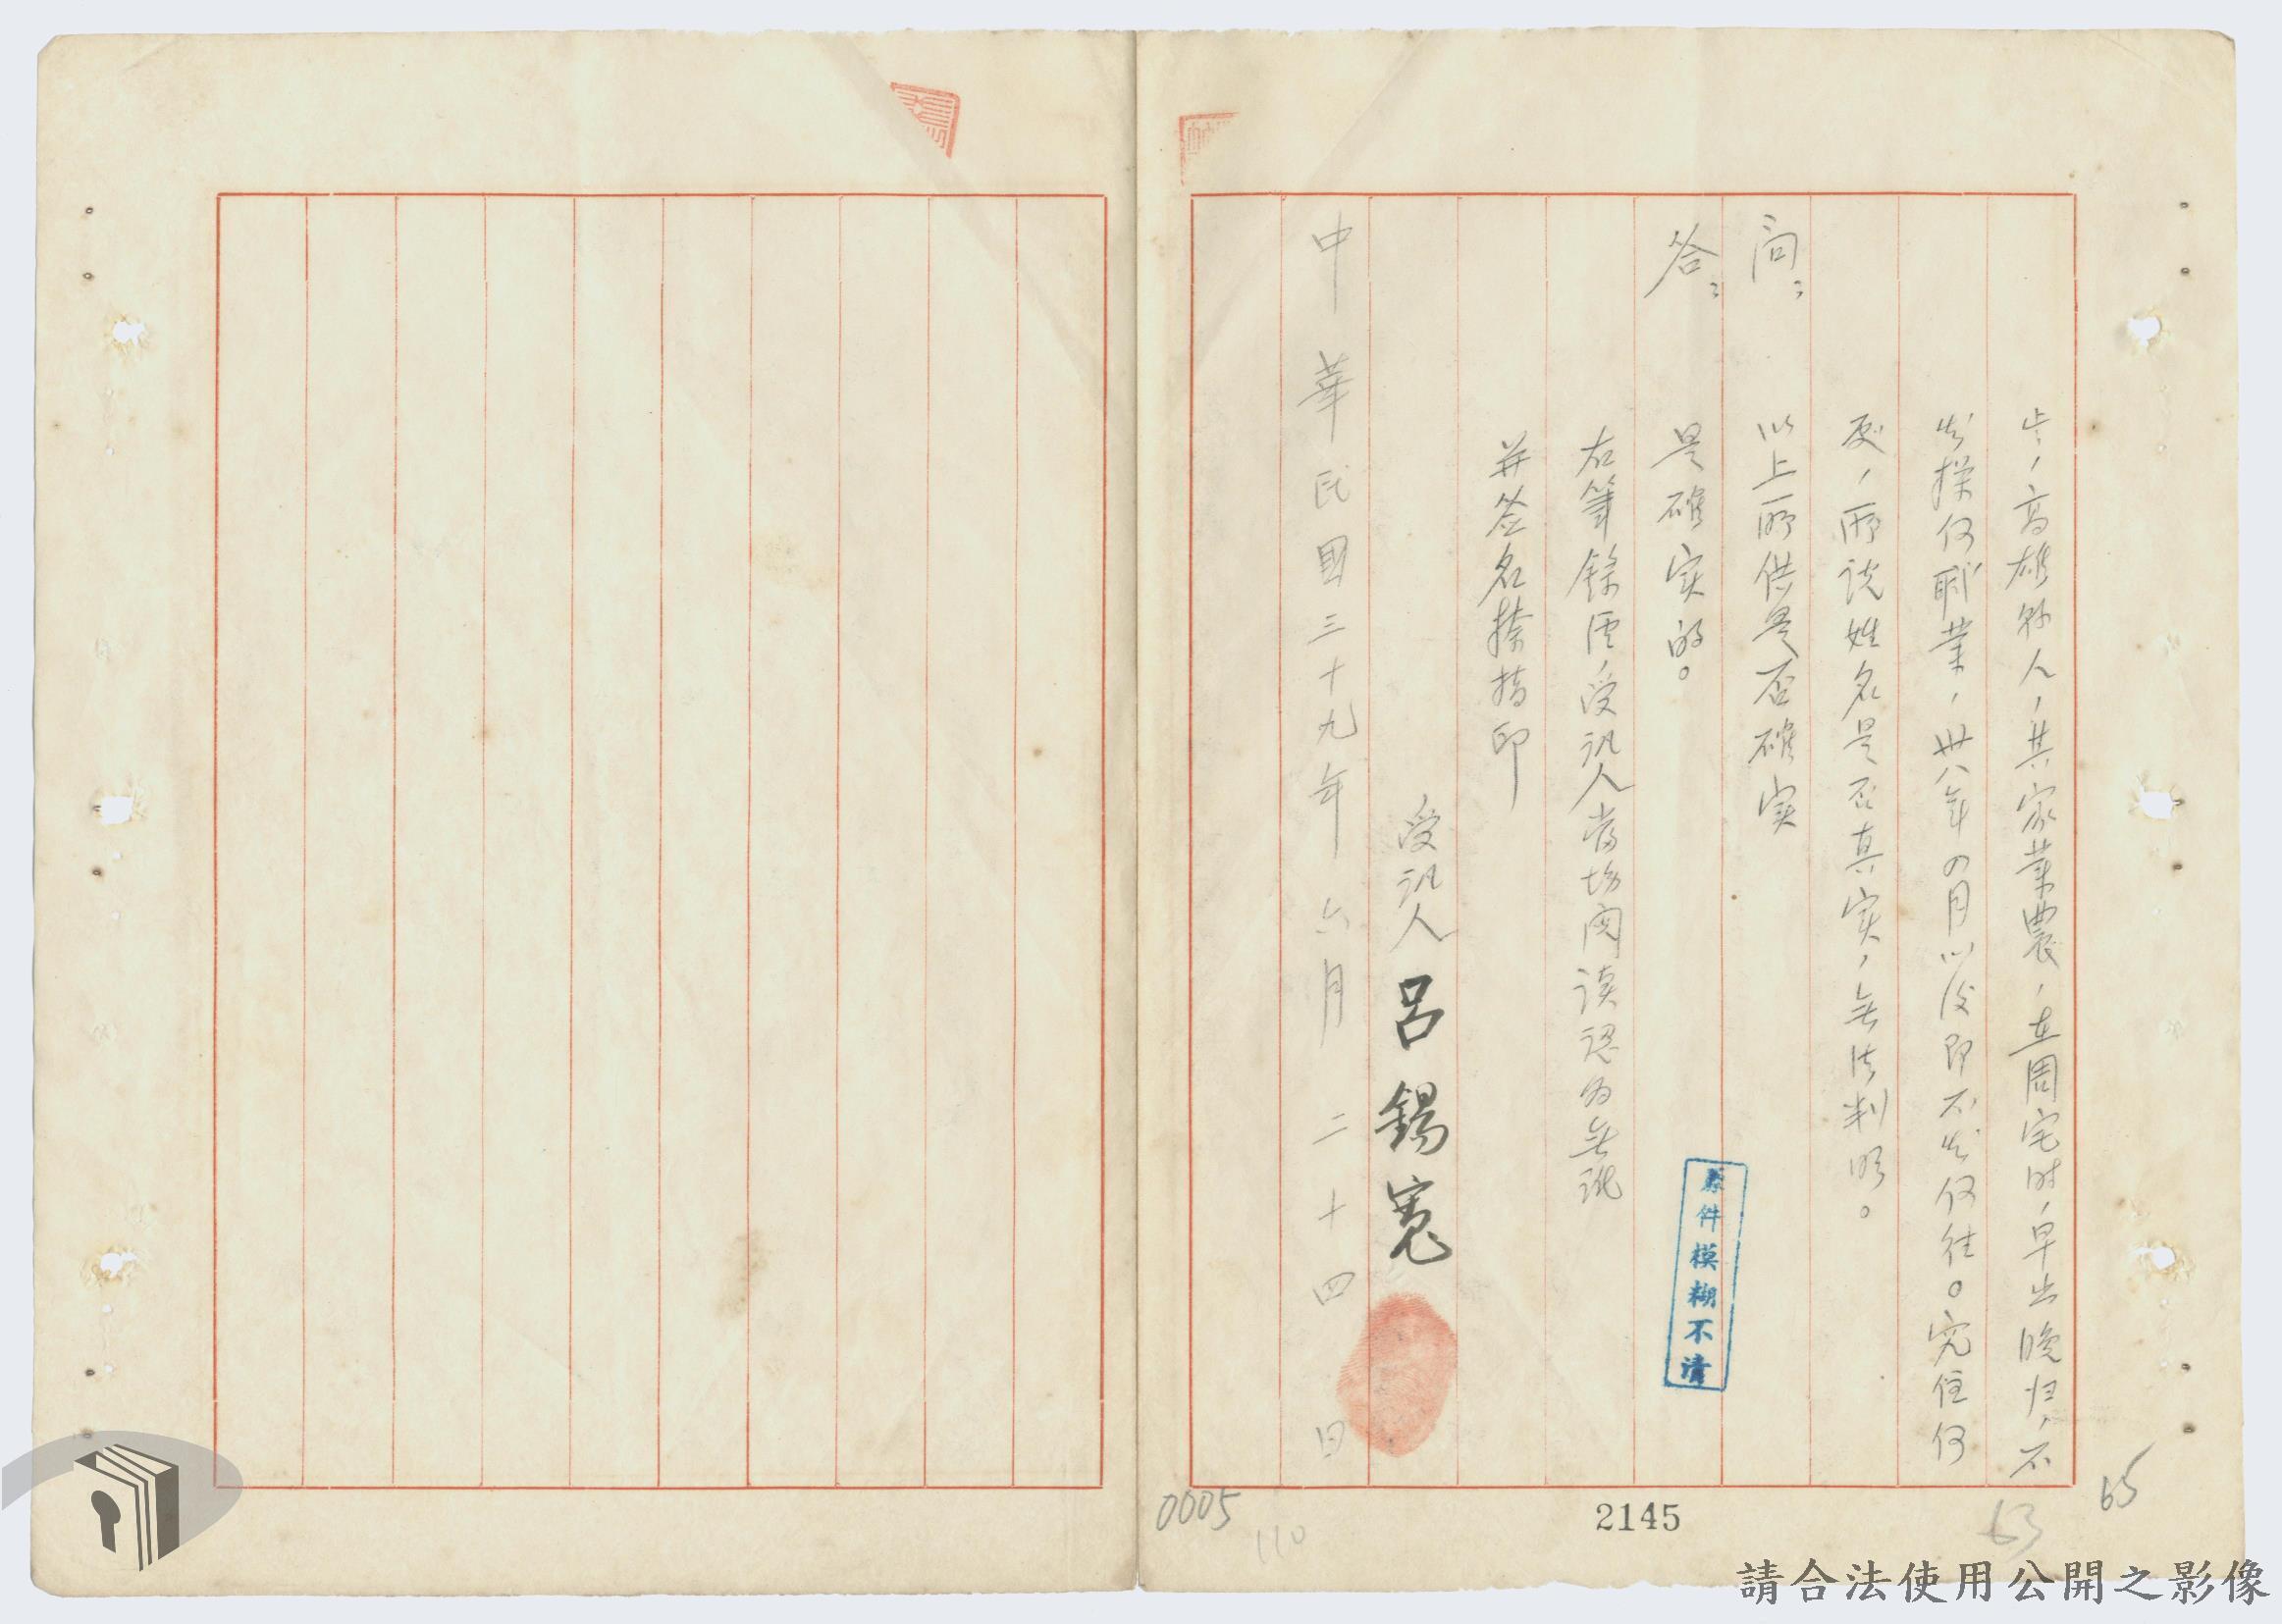 上，高雄縣人，其家業農，在周宅時，早出晚归，不
知操何职業，卅八年四月以後即不知何往。究住何
处，所说姓名是否真实，無法判明。
問：以上所供是否確实
答：是確实的。
右筆錄经受訊人当场阅读認为無訛
并签名捺指印
受訊人 呂錫寬
中華民國三十九年六月二十四日
原件模糊不清
0005
110
2145
63
65
請合法使用公開之影像